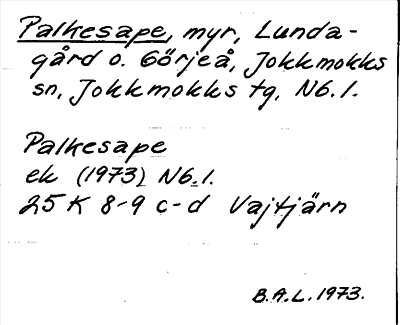 Palkesape, myr, Lunda-
gård o. Görjeå, Jokkmokks
sn, Jokkmokks tg, Nb. l.
Palkesape
ek (1973) Nb. l.
25 K 8-9 c-d Vajtjärn
B.A.L. 1973.